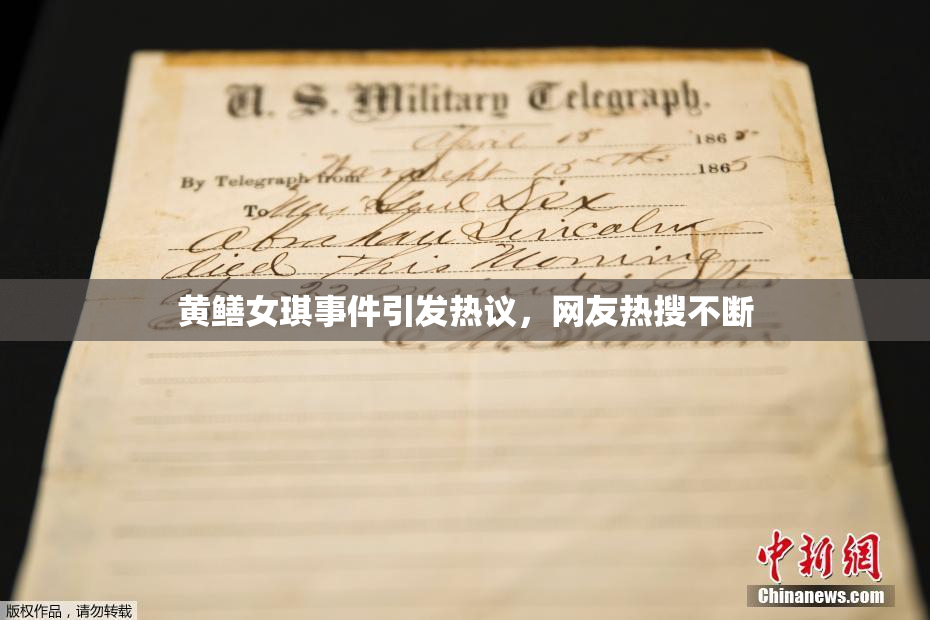 U. S. Military Telegraph.
April 15 1865
By Telegraph from War Dept 15th 1865
To Maj Genl Dix
Abraham Lincoln
died This Morning
at 22 minutes after
黄鳝女琪事件引发热议，网友热搜不断
E. M. Stanton
中新网
Chinanews.com
版权作品，请勿转载